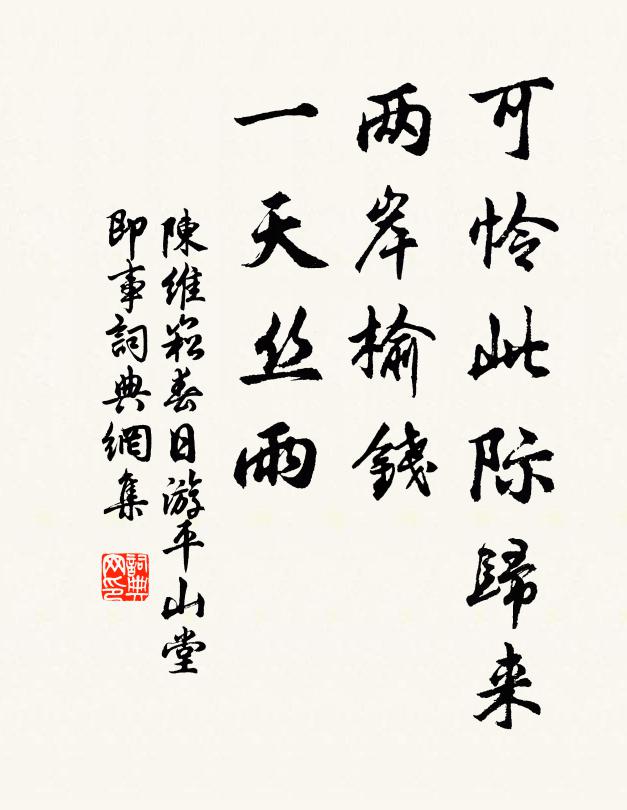 可怜此际歸来
两岸榆錢
一天丝雨
陳維崧春日游平山堂
即事詞典網集
詞典网印